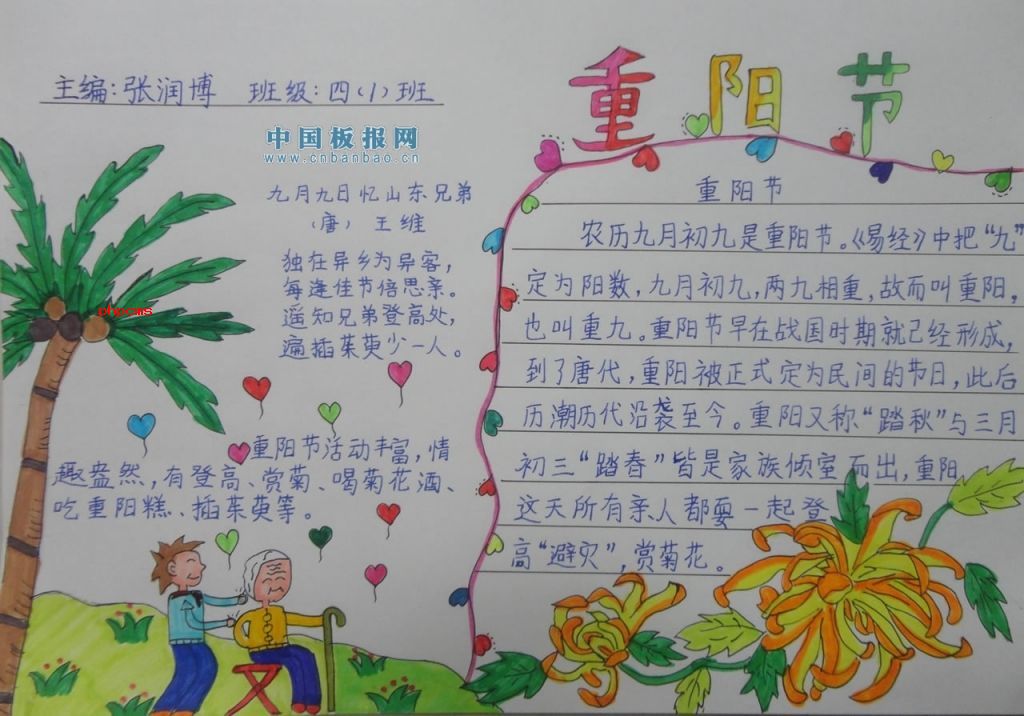 主编:张润博 班级:四(1)班
中国板报网
www.cnbanbao.cn
九月九日忆山东兄弟
(唐) 王维
独在异乡为异客,
每逢佳节倍思亲。
遥知兄弟登高处,
遍插茱萸少一人。
phpcms
重阳节活动丰富,情
趣盎然,有登高、赏菊、喝菊花酒、
吃重阳糕、插茱萸等。
重阳节
重阳节
农历九月初九是重阳节。《易经》中把“九”
定为阳数,九月初九,两九相重,故而叫重阳,
也叫重九。重阳节早在战国时期就已经形成,
到了唐代,重阳被正式定为民间的节日,此后
历潮历代沿袭至今。重阳又称“踏秋”与三月
初三“踏春”皆是家族倾室而出,重阳
这天所有亲人都要一起登
高“避灾”,赏菊花。